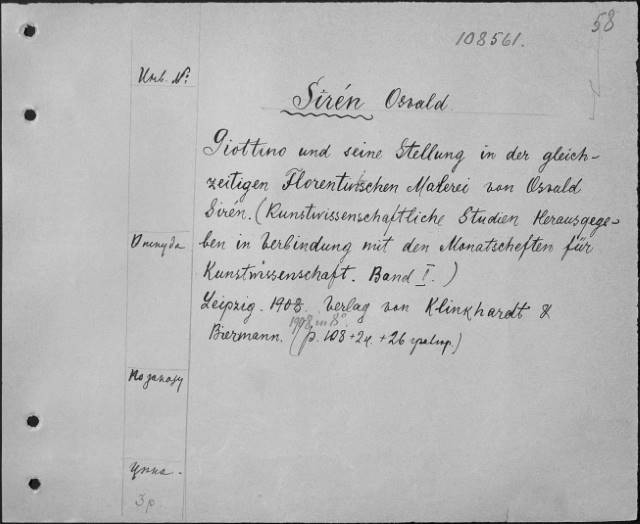 58
108561.
Инв. №
Sirén Osvald
Giottino und seine Stellung in der gleich-
zeitigen Florentinschen Malerei von Osvald
Sirén. (Kunstwissenschaftliche Studien Herausgege-
Откуда
ben in Verbindung mit den Monatscheften für
Kunstwissenschaft. Band I.)
Leipzig. 1908. Verlag von Klinkhardt &
1908 in 8°.
Biermann. (p. 108 + 2н. + 26 гравюр.)
По заказу
Цѣна.
3р